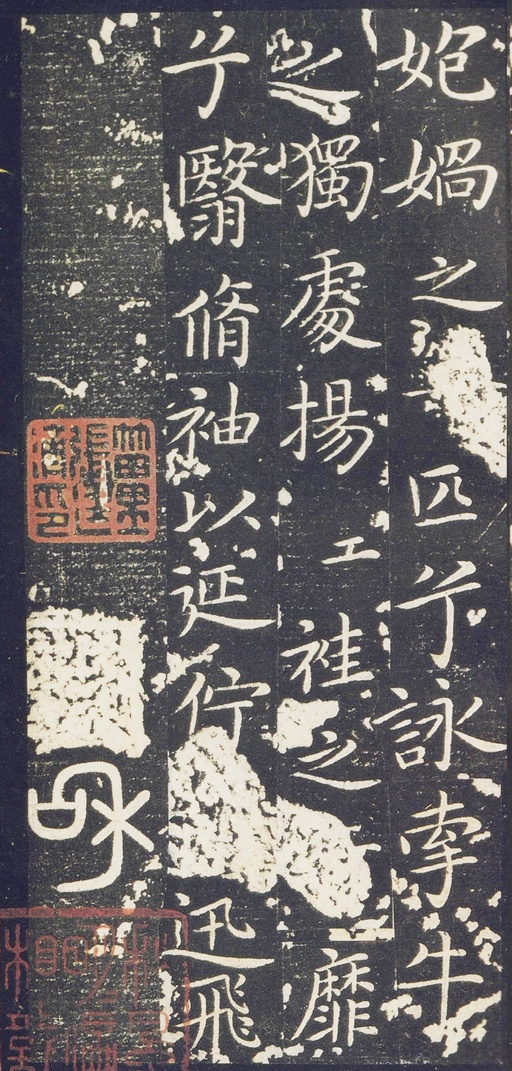 匏媧之匹兮詠牽牛
之獨處揚袿之靡
兮翳脩袖以延佇迅飛